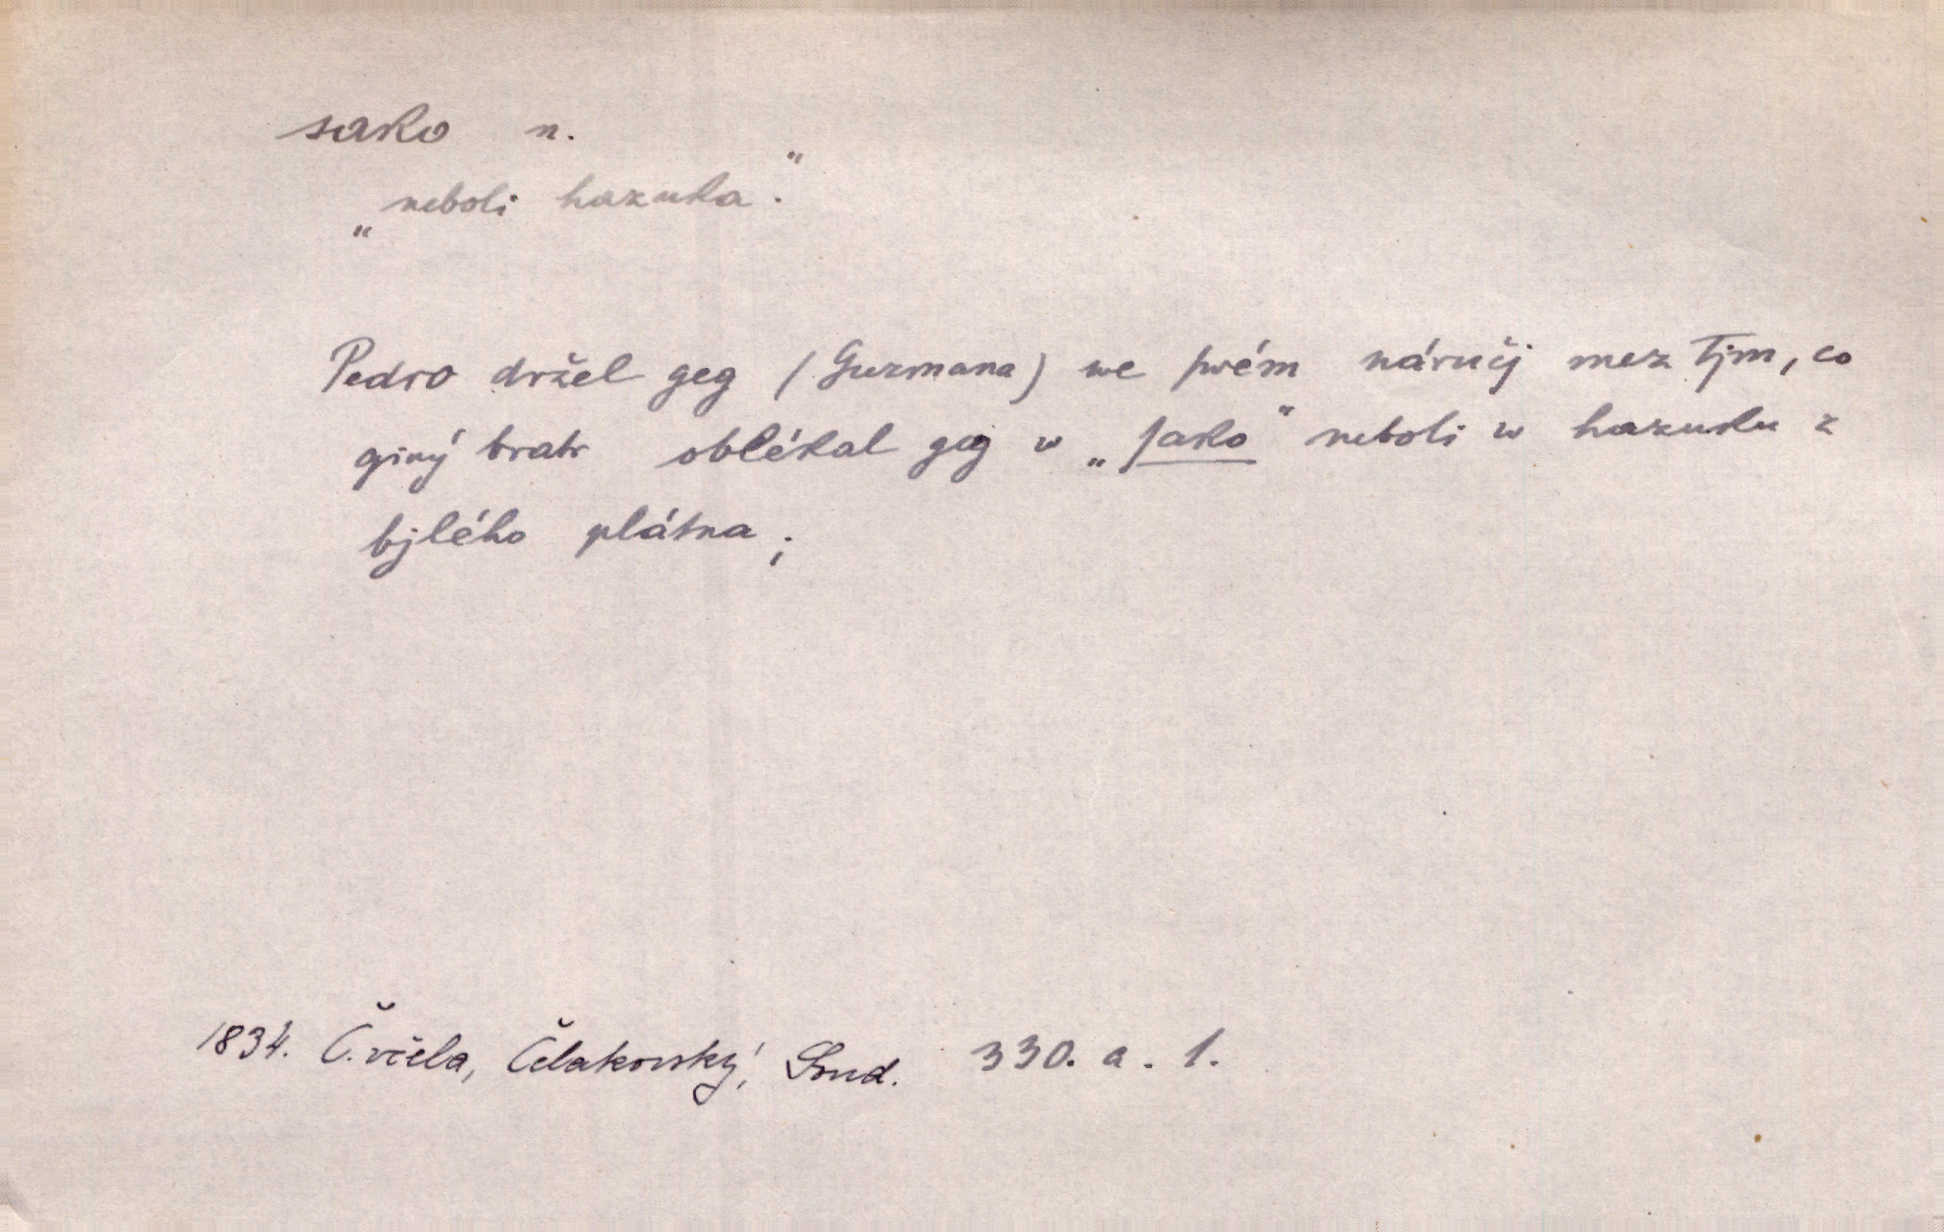 sako n.
„neboli hazuka."
Pedro držel geg (Guzmana) we ſwém náručj mez tjm, co
giný bratr oblékal geg w „ſako" neboli w hazuku z
bjlého plátna;
1834. Č. včela, Čelakovský, Soud. 330. a. 1.